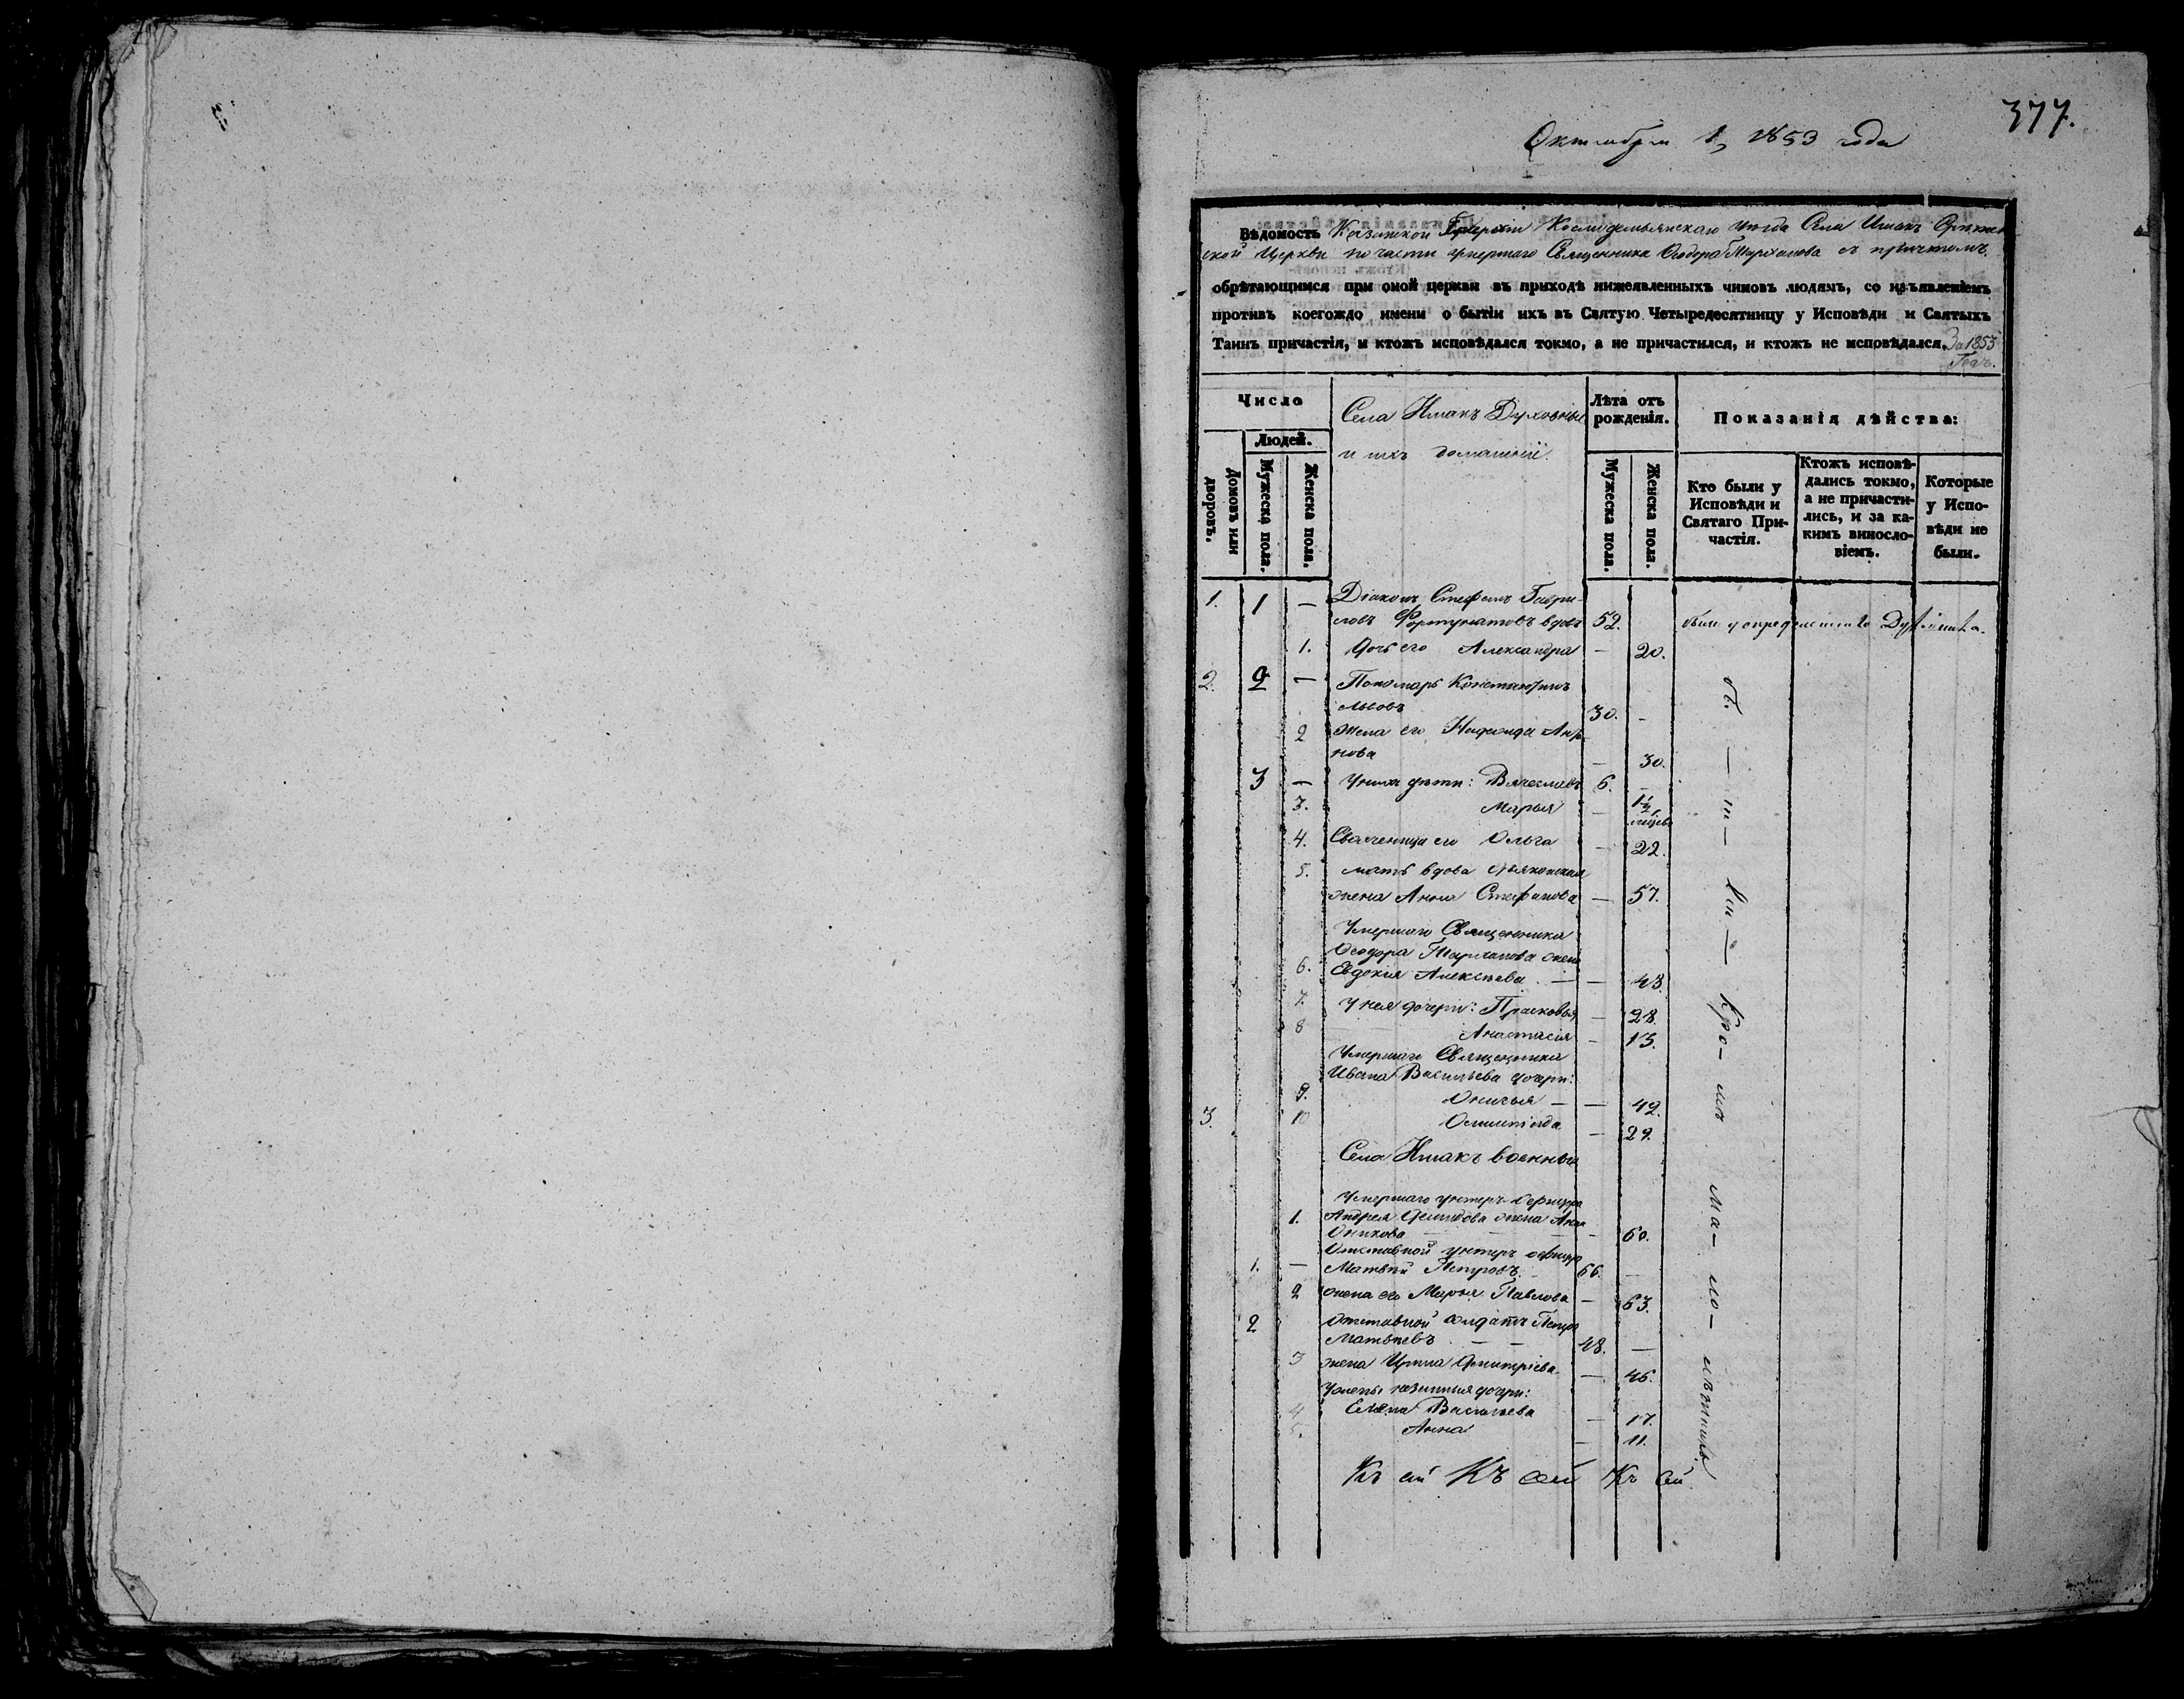 377.
Октября 1, 1853 года
Вѣдомость Казанской Епархіи Космодемьянскаго уѣзда Села Ишакъ
ской Церкви по части умершаго Священника Ѳеодора Тарханова съ причтомъ
обрѣтающимся при оной церкви въ приходѣ нижеявленныхъ чиновъ людямъ, со изъявленіемъ
противъ коегождо имени о бытіи ихъ въ Святую Четыредесятницу у Исповѣди и Святыхъ
Таинъ причастія, и ктожъ исповѣдался токмо, а не причастился, и ктожъ не исповѣдался. За 1853
Годъ.
Число
Людей.
Домовъ или дворовъ.
Мужеска пола.
Женска пола.
Села Ишакъ Духовные
и ихъ домашніи.
Лѣта отъ рожденія.
Мужеска пола.
Женска пола.
Показанія дѣйства:
Кто были у Исповѣди и Святаго Причастія.
Ктожъ исповѣдались токмо, а не причастились, и за какимъ винословіемъ.
Которые у Исповѣди не были.
1. 1 — Діаконъ Стефанъ Гаври-
ловъ Фортунатовъ вдовъ 52. были у опредѣленнаго Духовника.
1. Дочь его Александра — 20.
2. 2 — Пономарь Константинъ
Львовъ 30. -
2 жена его Надежда
— 30.
3 — У нихъ дѣти: Вячеславъ 6. -
3. Марья — 1½
4. Свояченица его Ольга — 22.
5. мать вдова дьяконская
жена Анна Стефанова — 57.
Умершаго Священника
Ѳеодора Тарханова жена
6. Евдокія Алексѣева — — 43.
7. У нея дочери: Прасковья — 28.
8 Анастасія — 13.
Умершаго Священника
Ивана Васильева дочери:
9. — — 42.
3. 10 Олимпіада — 29.
Села Ишакъ военные
Умершаго унтеръ-офицера
1. Андрея Демидова жена Анна
- 60.
Отставной унтеръ офицеръ
1. — Матвѣй Петровъ 66. -
2 жена его Марья Павлова — 63.
2 Отставной солдатъ Петръ
Матвѣевъ — — 48. —
3 жена Ирина Димитріева — 46.
У жены незаконныя дочери:
4 Елена Васильева — 17.
5. Анна — 11.
бы — ли — Кро — мѣ ма — ло — лѣтныхъ
Къ сей Къ сей Къ сей